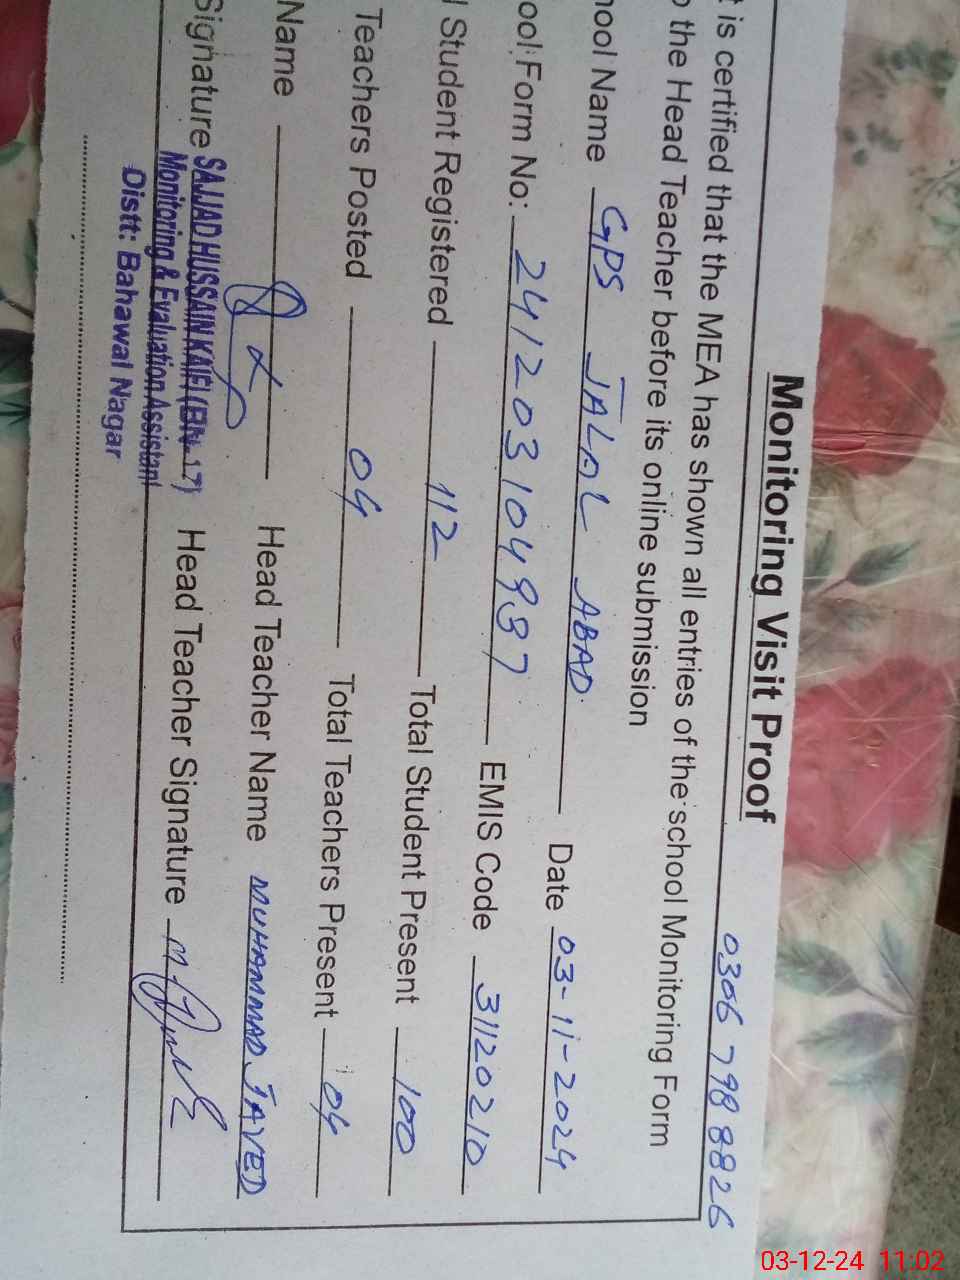 Monitoring Visit Proof
0306 798 8826
t is certified that the MEA has shown all entries of the school Monitoring Form
o the Head Teacher before its online submission
hool Name GPS JALAL ABAD Date 03-11-2024
ool Form No: 241203104937 EMIS Code 31120210
l Student Registered 112 Total Student Present 100
Teachers Posted 04 Total Teachers Present 04
Name Head Teacher Name MUHAMMAD JAVED
Signature SAJJAD HUSSAIN KAIFI (BN-17) Head Teacher Signature
Monitoring & Evaluation Assistant
Distt: Bahawal Nagar
03-12-24 11:02